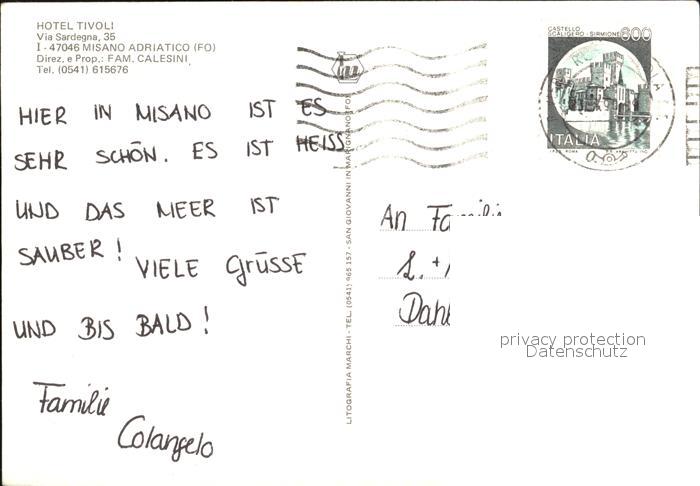 HOTEL TIVOLI
Via Sardegna, 35
I - 47046 MISANO ADRIATICO (FO)
Direz. e Prop.: FAM. CALESINI
Tel. (0541) 615676
HIER IN MISANO IST ES
SEHR SCHÖN. ES IST HEISS
UND DAS MEER IST
SAUBER!
VIELE GRÜSSE
UND BIS BALD!
Familie
Colangelo
LITOGRAFIA MARCHI - TEL. (0541) 965 157 - SAN GIOVANNI IN MARIGNANO (FO)
CASTELLO
SCALIGERO - SIRMIONE 600
ITALIA
An Familie
L. +
Dahl
privacy protection
Datenschutz